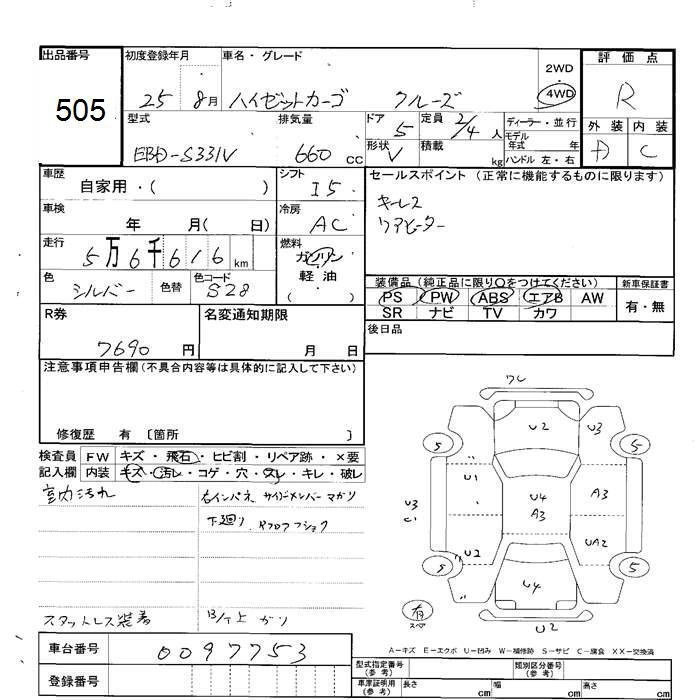 出品番号 初度登録年月 車名・グレード 2WD 評価点
505 25 8月 ハイゼットカーゴ クルーズ 4WD R
型式 排気量 ドア 定員 ディーラー・並行 外装 内装
EBD-S331V 660 CC 5 2/4 人 モデル年式 年 A C
形状 V 積載 kg ハンドル 左・右
車歴 自家用・( ) シフト I5 セールスポイント (正常に機能するものに限ります)
車検 年 月( 日) 冷房 AC キーレス
リアヒーター
走行 5万6千616 km 燃料 ガソリン
軽油
( )
色 シルバー 色替 色コード S28
装備品 (純正品に限り○をつけてください) 新車保証書
PS PW ABS エアB AW 有・無
SR ナビ TV カワ
R券 7690 円 名変通知期限 月 日 後日品
注意事項申告欄 (不具合内容等は具体的に記入して下さい)
修復歴 有 〔箇所 〕
検査員 FW キズ・飛石・ヒビ割・リペア跡・×要
記入欄 内装 キズ・汚レ・コゲ・穴・スレ・キレ・破レ
室内汚れ 右インパネ サイドメンバー マガリ
下廻り
スタットレス装着
ワレ
U2 U3
5 5
U1 U4 A3 A3
U3 C1
U2 UA2
5 5
U4
有 スペア
U2
A-キズ E-エクボ U-凹み W-補修跡 S-サビ C-腐食 XX-交換済
車台番号 0097753
登録番号
型式指定番号 (参考) 類別区分番号 (参考)
車庫証明用 (参考) 長さ cm 幅 cm 高さ cm